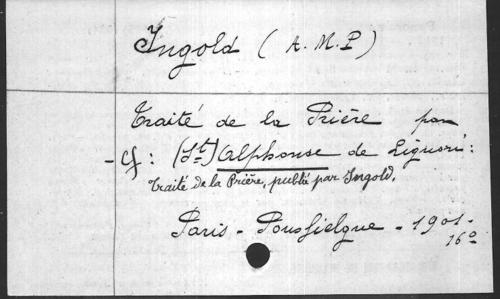 Ingold (A.M.P)
Traité de la Prière par
- Cf : (St) Alphonse de Liguori :
Traité de la Prière, publié par Ingold.
Paris - Poussielgue - 1901 -
16º